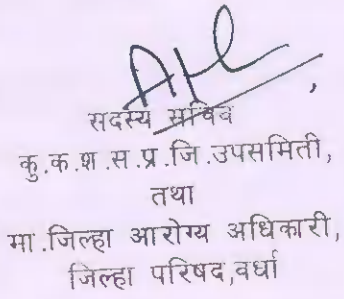 सदस्य सचिव
कु.क.श.स.प्र.जि.उपसमिती,
तथा
मा.जिल्हा आरोग्य अधिकारी,
जिल्हा परिषद,वर्धा